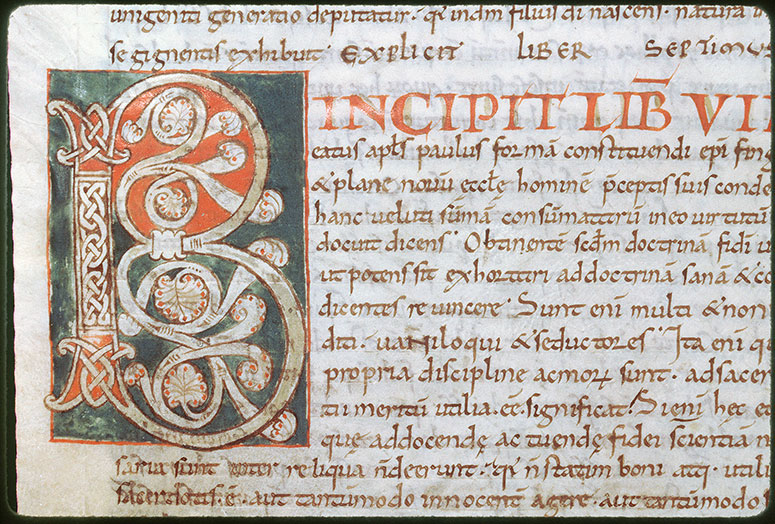 unigeniti generatio deputatur. q̅ indm̅ filius di nascens. natura
se gignentis exhibuit. EXPLICIT LIBER SEPTIMUS
INCIPIT LIB̅ VII
B
eatus apłs paulus forma̅ constituendi ep̅i fing
& plane nouu̅ eccłe homine̅ p̅ceptis suis conde
hanc ueluti su̅ma̅ consu̅mataru̅ in eo uirtutu̅
docuit dicens. Obtinente̅ scd̅m doctrina̅ fidei u
ut potens sit exhortari ad doctrina̅ sana̅ & co
dicentes reuincere. Sunt eni̅ multi & non
diti. uaniloqui & seductores. Ita eni̅ q
propria discipline ac moꝝ sunt. ad sacer
tii meritu̅ utilia. e̅e̅. significat. Si eni̅ hęc et
quę ad docendę ac tuendę fidei scientia̅ n
sario sunt inter reliqua n̅ deerunt. q̅ n̅ statim boni atq. utili
sacerdotis. e̅. aut tantu̅modo innocent̅ agere. aut tantu̅modo s